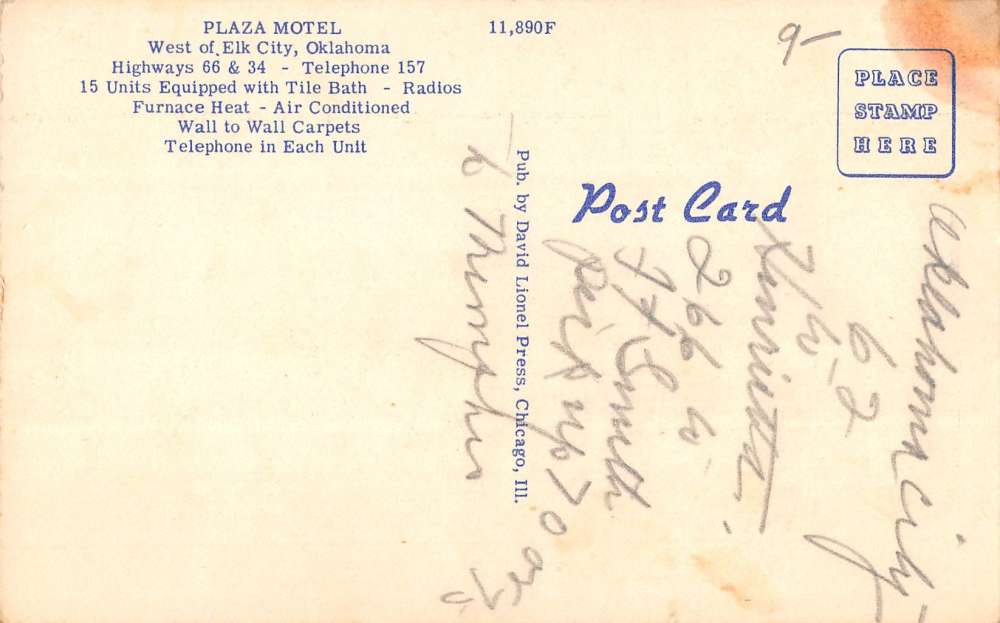 PLAZA MOTEL
West of Elk City, Oklahoma
Highways 66 & 34 - Telephone 157
15 Units Equipped with Tile Bath - Radios
Furnace Heat - Air Conditioned
Wall to Wall Carpets
Telephone in Each Unit
11,890F
PLACE
STAMP
HERE
Post Card
Pub. by David Lionel Press, Chicago, Ill.
Oklahoma City
62
Henrietta
266
Ft Smith
pick up 70
to Memphis